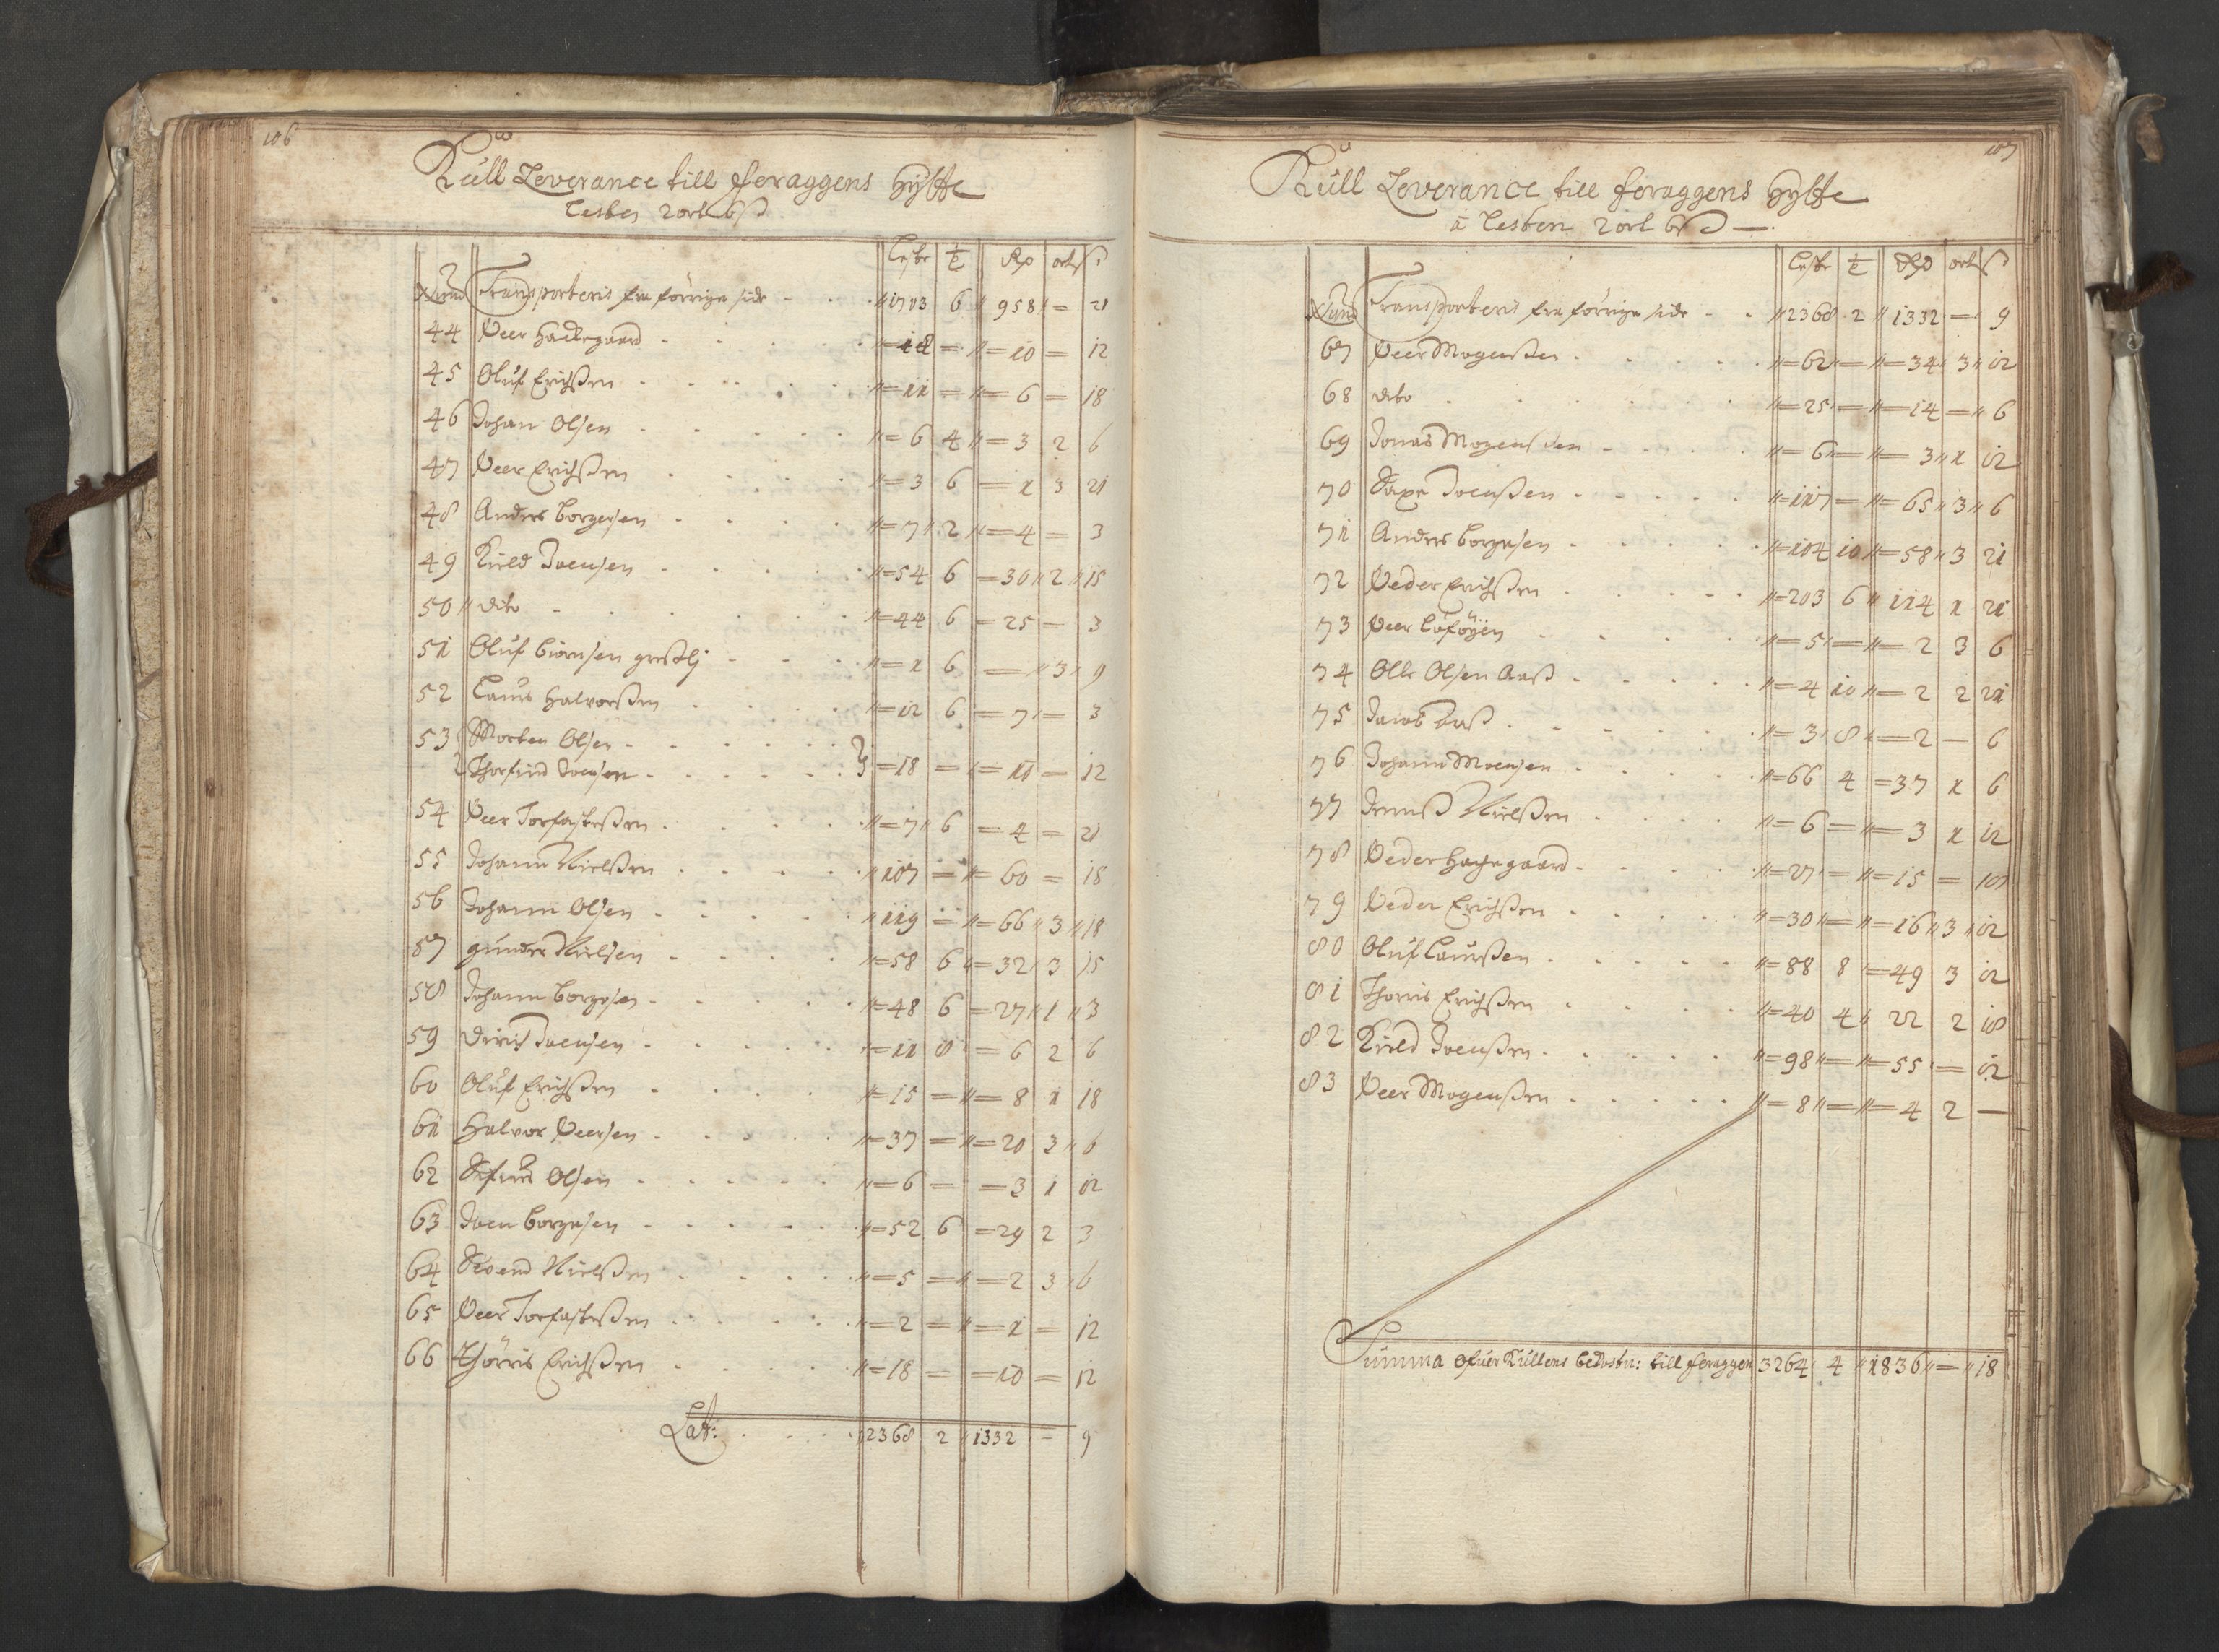 106
Kull Leverance till feraggens Hytte
Lesten 2 ort 6 ß
Lester t Rd ort ß
Num Transporteris fra forrige side 1703 6 958 = 21
44 Peer Hackegaard 18 = 10 = 12
45 Oluf Erichßen 11 = 6 = 18
46 Johan Olsen 6 4 3 2 6
47 Peer Erichßen 3 6 1 3 21
48 Anders Borgesen 7 2 4 = 3
49 Kield Joensen 54 6 30 2 15
50 dito 44 6 25 = 3
51 Oluf Biörnsen 1 6 = 3 9
52 Laurs Halvorßen 12 6 7 = 3
53 Morten Olsen
Thorfind Joensen 18 = 10 = 12
54 Peer Torfasteßen 7 6 4 = 21
55 Johann Nielßen 107 = 60 = 18
56 Johann Olsen 119 = 66 3 18
57 Gunder Nielsen 58 6 32 3 15
58 Johann Borgesen 48 6 27 1 3
59 Dirich Joensen 11 8 6 2 6
60 Oluf Erichßen 15 = 8 1 18
61 Halvor Peersen 37 = 20 3 6
62 Sifuer Olsen 6 = 3 1 12
63 Joen Borgesen 52 6 29 2 3
64 Svend Nielßen 5 = 2 3 6
65 Peer Torfasteßen 2 = 1 = 12
66 Thörris Erichßen 18 = 10 = 12
Lat: 2368 2 1332 - 9
107
Kull Leverance till feraggens Hytte
a Lesten 2 ort 6 ß
Lester t Rd ort ß
Num Transporteris fra forrige side 2368 2 1332 = 9
67 Peer Mogenßen 62 = 34 3 12
68 dito 25 = 14 = 6
69 Jonas Mogensen 6 = 3 1 12
70 Saxe Joenßen 117 = 65 3 6
71 Anders Borgesen 104 10 58 3 21
72 Peder Erichßen 203 6 114 1 21
73 Peer Löföyen 5 = 2 3 6
74 Olle Olsen Aaß 4 10 2 2 21
75 Jacob Aaß 3 8 2 - 6
76 Johann Moensen 66 4 37 1 6
77 Jennß Nielßen 6 = 3 1 12
78 Peder Hachegaard 27 = 15 = 18
79 Peder Erichßen 30 = 16 3 12
80 Oluf Laurßen 88 8 49 3 12
81 Thorris Erichßen 40 4 22 2 18
82 Kield Joenßen 98 = 55 = 12
83 Peer Mogenßen 8 = 4 2 -
Summa ofuer Kullens bekostn: till feraggen 3264 4 1836 = 18